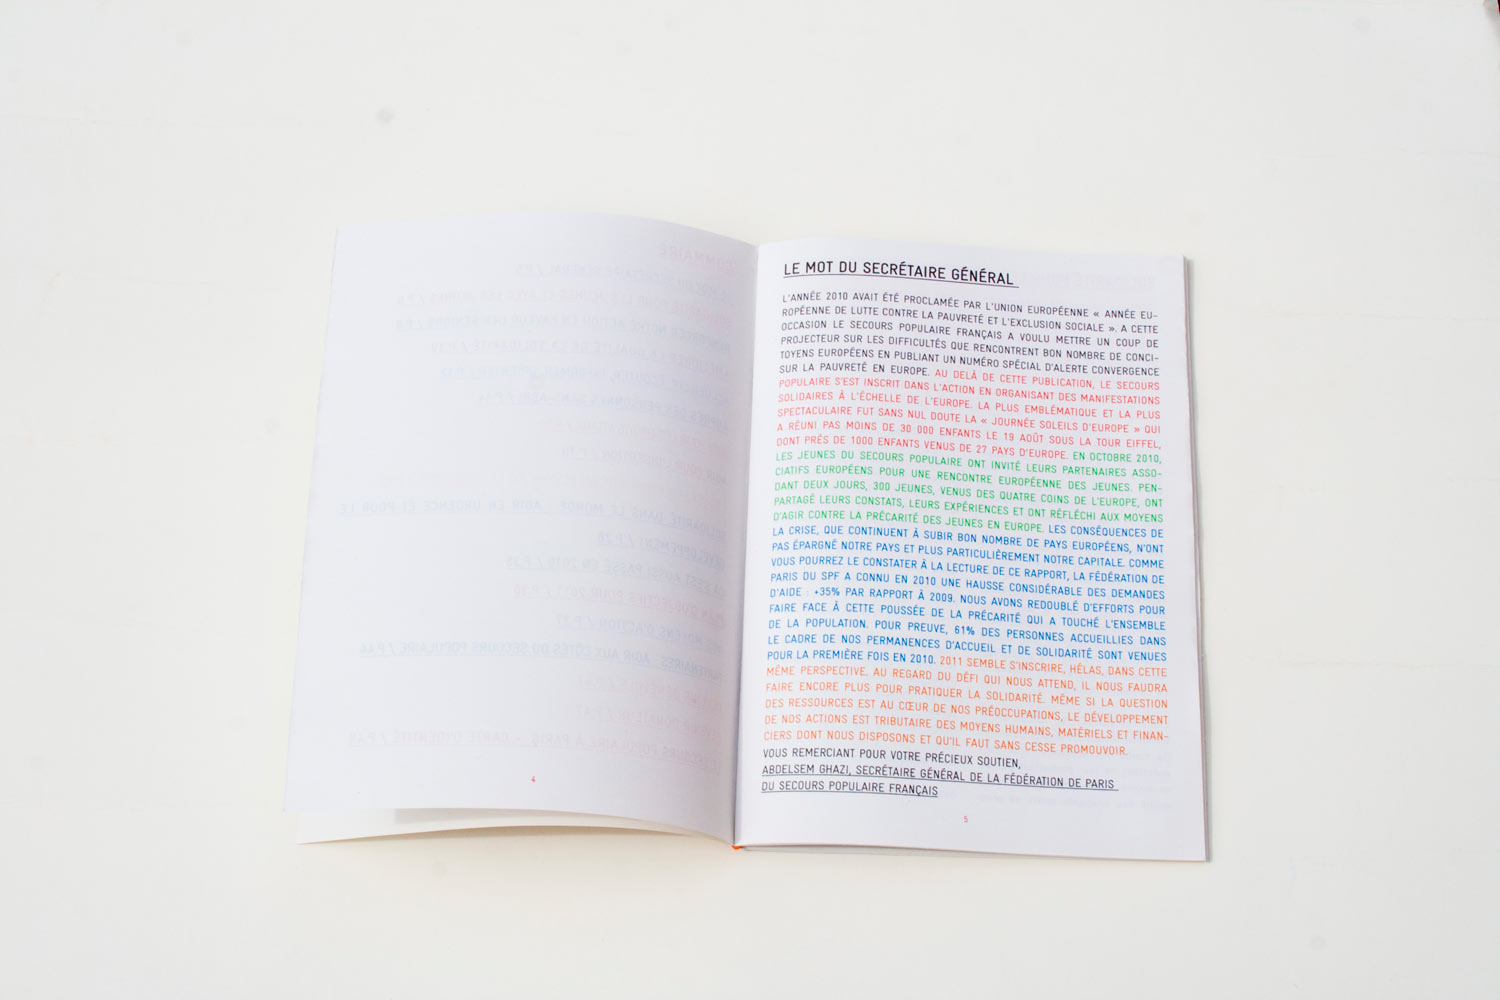 4
LE MOT DU SECRÉTAIRE GÉNÉRAL
L'ANNÉE 2010 AVAIT ÉTÉ PROCLAMÉE PAR L'UNION EUROPÉENNE « ANNÉE EU-
ROPÉENNE DE LUTTE CONTRE LA PAUVRETÉ ET L'EXCLUSION SOCIALE ». A CETTE
OCCASION LE SECOURS POPULAIRE FRANÇAIS A VOULU METTRE UN COUP DE
PROJECTEUR SUR LES DIFFICULTÉS QUE RENCONTRENT BON NOMBRE DE CONCI-
TOYENS EUROPÉENS EN PUBLIANT UN NUMÉRO SPÉCIAL D'ALERTE CONVERGENCE
SUR LA PAUVRETÉ EN EUROPE. AU DELÀ DE CETTE PUBLICATION, LE SECOURS
POPULAIRE S'EST INSCRIT DANS L'ACTION EN ORGANISANT DES MANIFESTATIONS
SOLIDAIRES À L'ÉCHELLE DE L'EUROPE. LA PLUS EMBLÉMATIQUE ET LA PLUS
SPECTACULAIRE FUT SANS NUL DOUTE LA « JOURNÉE SOLEILS D'EUROPE » QUI
A RÉUNI PAS MOINS DE 30 000 ENFANTS LE 19 AOÛT SOUS LA TOUR EIFFEL,
DONT PRÈS DE 1000 ENFANTS VENUS DE 27 PAYS D'EUROPE. EN OCTOBRE 2010,
LES JEUNES DU SECOURS POPULAIRE ONT INVITÉ LEURS PARTENAIRES ASSO-
CIATIFS EUROPÉENS POUR UNE RENCONTRE EUROPÉENNE DES JEUNES. PEN-
DANT DEUX JOURS, 300 JEUNES, VENUS DES QUATRE COINS DE L'EUROPE, ONT
PARTAGÉ LEURS CONSTATS, LEURS EXPÉRIENCES ET ONT RÉFLÉCHI AUX MOYENS
D'AGIR CONTRE LA PRÉCARITÉ DES JEUNES EN EUROPE. LES CONSÉQUENCES DE
LA CRISE, QUE CONTINUENT À SUBIR BON NOMBRE DE PAYS EUROPÉENS, N'ONT
PAS ÉPARGNÉ NOTRE PAYS ET PLUS PARTICULIÈREMENT NOTRE CAPITALE. COMME
VOUS POURREZ LE CONSTATER À LA LECTURE DE CE RAPPORT, LA FÉDÉRATION DE
PARIS DU SPF A CONNU EN 2010 UNE HAUSSE CONSIDÉRABLE DES DEMANDES
D'AIDE : +35% PAR RAPPORT À 2009. NOUS AVONS REDOUBLÉ D'EFFORTS POUR
FAIRE FACE À CETTE POUSSÉE DE LA PRÉCARITÉ QUI A TOUCHÉ L'ENSEMBLE
DE LA POPULATION. POUR PREUVE, 61% DES PERSONNES ACCUEILLIES DANS
LE CADRE DE NOS PERMANENCES D'ACCUEIL ET DE SOLIDARITÉ SONT VENUES
POUR LA PREMIÈRE FOIS EN 2010. 2011 SEMBLE S'INSCRIRE, HÉLAS, DANS CETTE
MÊME PERSPECTIVE. AU REGARD DU DÉFI QUI NOUS ATTEND, IL NOUS FAUDRA
FAIRE ENCORE PLUS POUR PRATIQUER LA SOLIDARITÉ. MÊME SI LA QUESTION
DES RESSOURCES EST AU CŒUR DE NOS PRÉOCCUPATIONS, LE DÉVELOPPEMENT
DE NOS ACTIONS EST TRIBUTAIRE DES MOYENS HUMAINS, MATÉRIELS ET FINAN-
CIERS DONT NOUS DISPOSONS ET QU'IL FAUT SANS CESSE PROMOUVOIR.
VOUS REMERCIANT POUR VOTRE PRÉCIEUX SOUTIEN,
ABDELSEM GHAZI, SECRÉTAIRE GÉNÉRAL DE LA FÉDÉRATION DE PARIS
DU SECOURS POPULAIRE FRANÇAIS
5